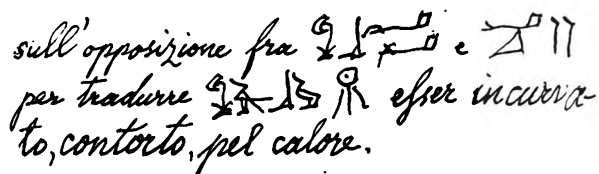 sull'opposizione fra e
per tradurre esser incurva-
to, contorto, pel calore.